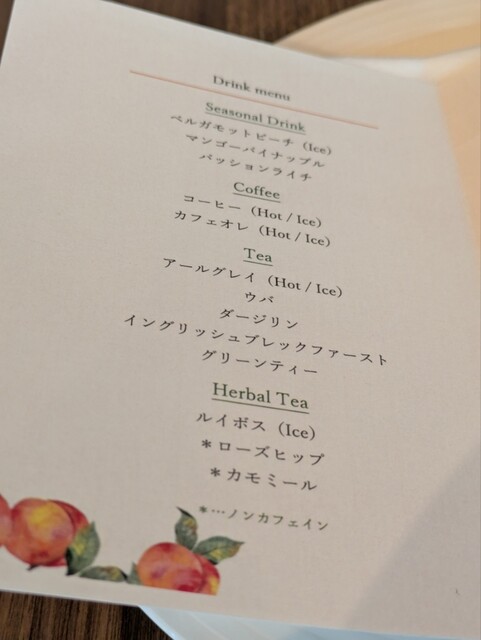 Drink menu
Seasonal Drink
ベルガモットピーチ（Ice）
マンゴーパイナップル
パッションライチ
Coffee
コーヒー（Hot / Ice）
カフェオレ（Hot / Ice）
Tea
アールグレイ（Hot / Ice）
ウバ
ダージリン
イングリッシュブレックファースト
グリーンティー
Herbal Tea
ルイボス（Ice）
＊ローズヒップ
＊カモミール
＊…ノンカフェイン